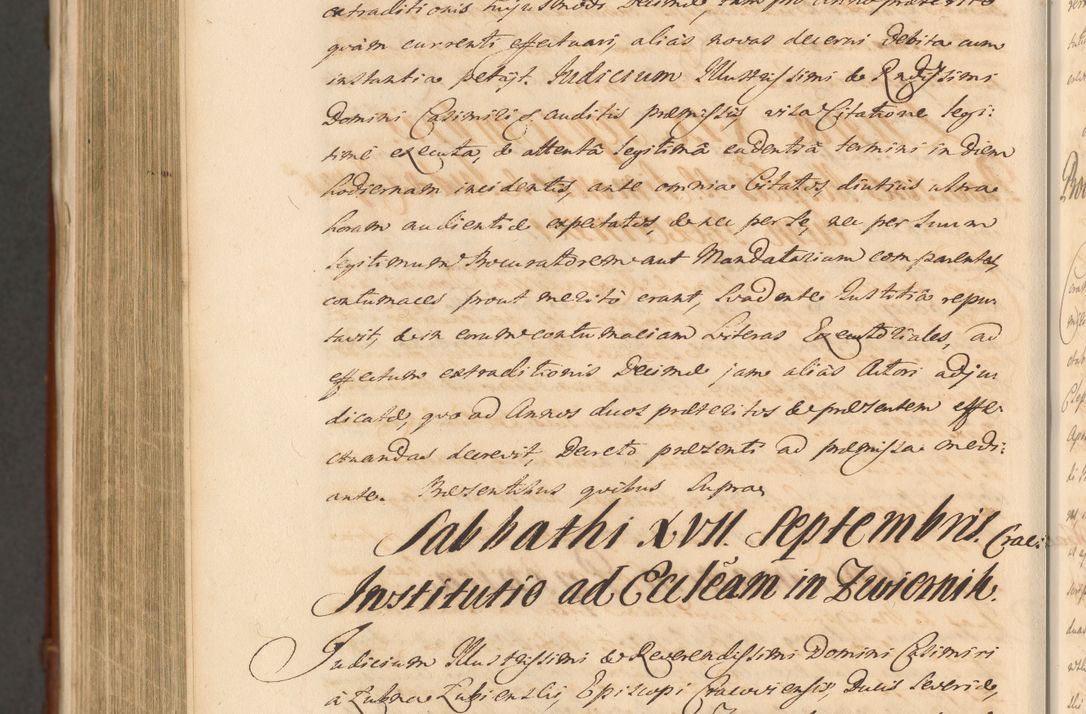 extraditionis hujusmodi Decimæ, tam pro Anno præterito
quàm currenti effectuari, aliàs novas decerni debita cum
instantia petijt. Judicium Illustrissimi & Rndissimi
Domini Casimiri &c. auditis præmissis, visa Citatione legi:
timè executa, & attentâ legitimâ cadentiâ termini in diem
hodiernam incidentis, ante omnia Citatos, diutius ultra
horam audientiæ expectatos, & nec per se, nec per Suum
legitimum Procuratorem aut Mandatarium comparentes,
contumaces prout meritò erant, Suadente Justitiâ repu:
tavit, & in eorum contumaciam Literas Executoriales, ad
effectum extraditionis Decimæ jam aliàs Actori adju:
dicatæ, quo ad Annos duos præteritos & præsentem effe:
ctuandas decrevit, Decreto præsenti ad præmissa medi:
ante. Præsentibus quibus Supra.
Sabbathi XVII. Septembris. Crac:
Institutio ad Eccleãm in Zwiernik.
Judicium Illustrissimi & Reverendissimi Domini Casimiri
à Łubna Łubienski, Episcopi Cracoviensis, Ducis Severiæ,